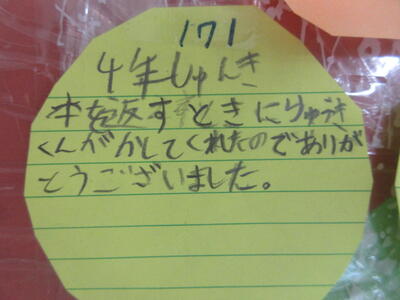 171
4年しゅんき
本を返すときにりゅうき
くんがかしてくれたのでありが
とうございました。